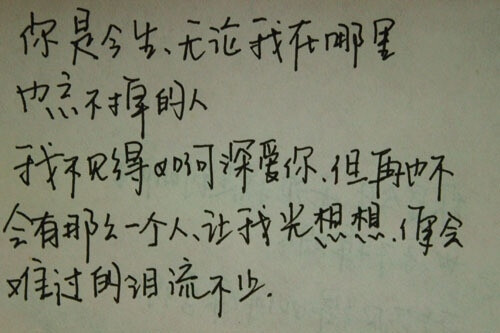 你是今生、无论我在哪里
也忘不掉的人
我不见得如何深爱你、但再也不
会有那么一个人、让我光想想、便会
难过的泪流不止.